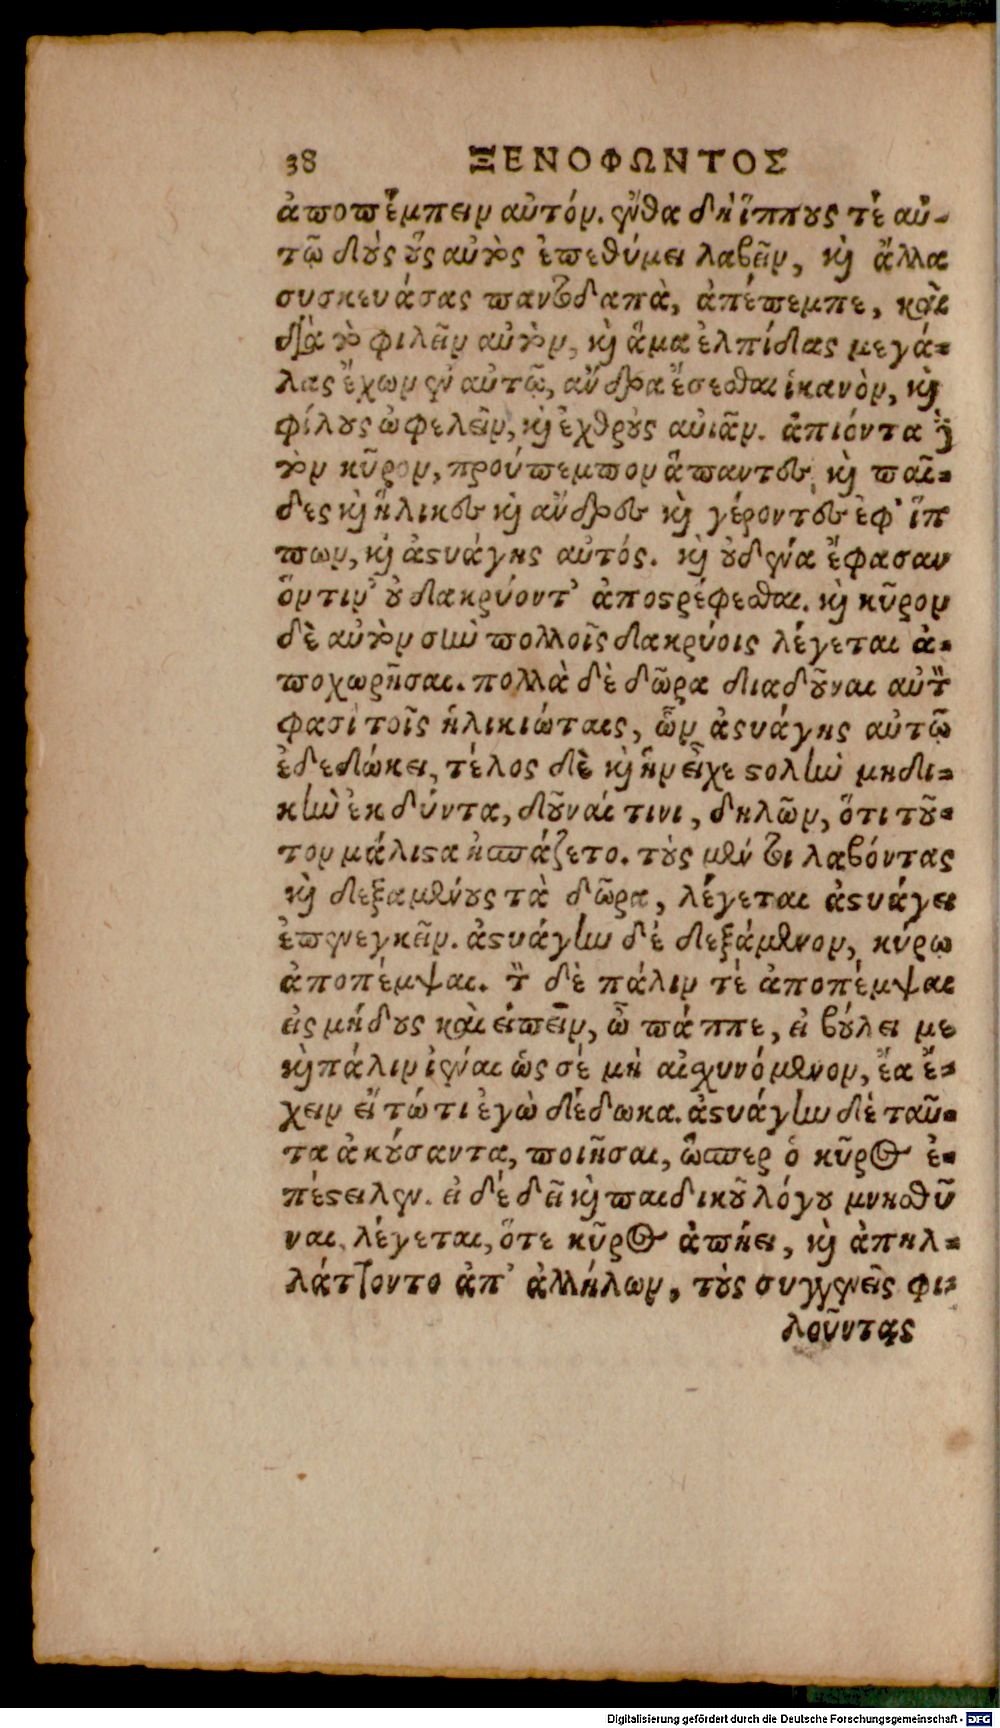 38 ΞΕΝΟΦΩΝΤΟΣ
ἀποπέμπειν αὐτόν. ἔνθα δὴ ἵππους τε αὐ-
τῷ δοὺς οὓς αὐτὸς ἐπεθύμει λαβεῖν, καὶ ἄλλα
συσκευάσας παντοδαπὰ, ἀπέπεμπε, καὶ
διὰ τὸ φιλεῖν αὐτὸν, καὶ ἅμα ἐλπίδας μεγά-
λας ἔχων ἐν αὐτῷ, ἄνδρα ἔσεσθαι ἱκανὸν, καὶ
φίλους ὠφελεῖν, καὶ ἐχθροὺς ἀνιᾶν. ἀπιόντα δὲ
τὸν κῦρον, προύπεμπον ἅπαντες, καὶ παῖ-
δες καὶ ἥλικες καὶ ἄνδρες καὶ γέροντες ἐφ' ἵπ
πων, καὶ ἀστυάγης αὐτός. καὶ οὐδένα ἔφασαν
ὅντιν' οὐ δακρύοντ' ἀποστρέφεσθαι. καὶ κῦρον
δὲ αὐτὸν σὺν πολλοῖς δακρύοις λέγεται ἀ-
ποχωρῆσαι. πολλὰ δὲ δῶρα διαδοῦναι αὐτὸν
φασὶ τοῖς ἡλικιώταις, ὧν ἀστυάγης αὐτῷ
ἐδεδώκει, τέλος δὲ καὶ ἣν εἶχε στολὴν μηδι-
κὴν ἐκδύντα, δοῦναί τινι, δηλῶν, ὅτι τοῦ-
τον μάλιστα ἠσπάζετο. τοὺς μέν τοι λαβόντας
καὶ δεξαμένους τὰ δῶρα, λέγεται ἀστυάγει
ἐπενεγκεῖν. ἀστυάγην δὲ δεξάμενον, κύρῳ
ἀποπέμψαι. τὸν δὲ πάλιν τὲ ἀποπέμψαι
εἰς μήδους καὶ εἰπεῖν, ὦ πάππε, εἰ βούλει με
καὶ πάλιν ἰέναι ὡς σὲ μὴ αἰσχυνόμενον, ἔα ἔ-
χειν εἴ τῴ τι ἐγὼ δέδωκα. ἀστυάγην δὲ ταῦ-
τα ἀκούσαντα, ποιῆσαι, ὥσπερ ὁ κῦρος ἐ-
πέστειλεν. εἰ δὲ δεῖ καὶ παιδικοῦ λόγου μνησθῆ
ναι, λέγεται, ὅτε κῦρος ἀπῄει, καὶ ἀπηλ-
λάττοντο ἀπ' ἀλλήλων, τοὺς συγγενεῖς φι-
λοῦντας
Digitalisierung gefördert durch die Deutsche Forschungsgemeinschaft - DFG